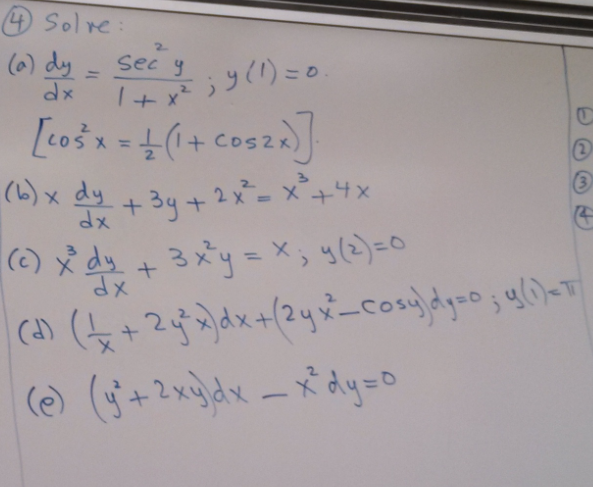 ④ Solve:
(a) dy/dx = sec²y / (1 + x²) ; y(1) = 0.
[cos²x = 1/2 (1 + cos2x)]
(b) x dy/dx + 3y + 2x² = x³ + 4x
(c) x³ dy/dx + 3x²y = x ; y(2) = 0
(d) (1/x + 2y²x)dx + (2yx² - cosy)dy = 0 ; y(1) = π
(e) (y² + 2xy)dx - x² dy = 0
①
②
③
④